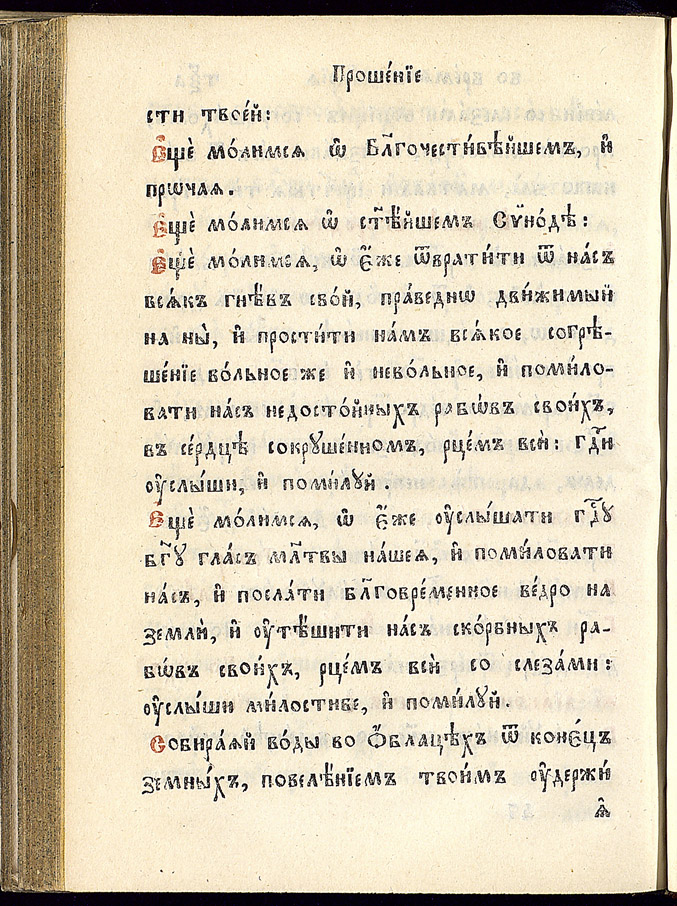 Проше́нїе
сти твое́й:
Є҆щѐ мо́лимсѧ ѡ҆ Бл҃гочести́вѣйшемъ, и҆
прѡ́чаѧ.
Є҆щѐ мо́лимсѧ ѡ҆ ст҃ѣ́йшемъ Сѷно́дѣ:
Є҆щѐ мо́лимсѧ, ѡ҆ є҆́же ѿврати́ти ѿ на́съ
всѧ́къ гнѣ́въ сво́й, пра́веднѡ дви́жимый
на ны̀, и҆ прости́ти на́мъ всѧ́кое согрѣ-
ше́нїе во́льное же и҆ нево́льное, и҆ поми́ло-
вати на́съ недосто́йныхъ рабѡ́въ свои́хъ,
въ се́рдцѣ сокрꙋше́нномъ рце́мъ всѝ: гд҇и
ᲂу҆слы́ши, и҆ поми́лꙋй.
Є҆щѐ мо́лимсѧ, ѡ҆ є҆́же ᲂу҆слы́шати гд҇ꙋ
бг҃ꙋ гла́съ мл҃твы на́шеѧ, и҆ поми́ловати
на́съ, и҆ посла́ти бл҃говре́менное ве́дро на
зе́млѝ, и҆ ᲂу҆тѣ́шити на́съ ско́рбныхъ ра-
бѡ́въ свои́хъ, рце́мъ всѝ со слеза́ми:
ᲂу҆слы́ши ми́лостиве, и҆ поми́лꙋй.
Собира́ѧй во́ды во ѻ҆́блацѣхъ ѿ коне́цъ
земны́хъ, повелѣ́нїемъ твои́мъ ᲂу҆держѝ
ѧ҆̀